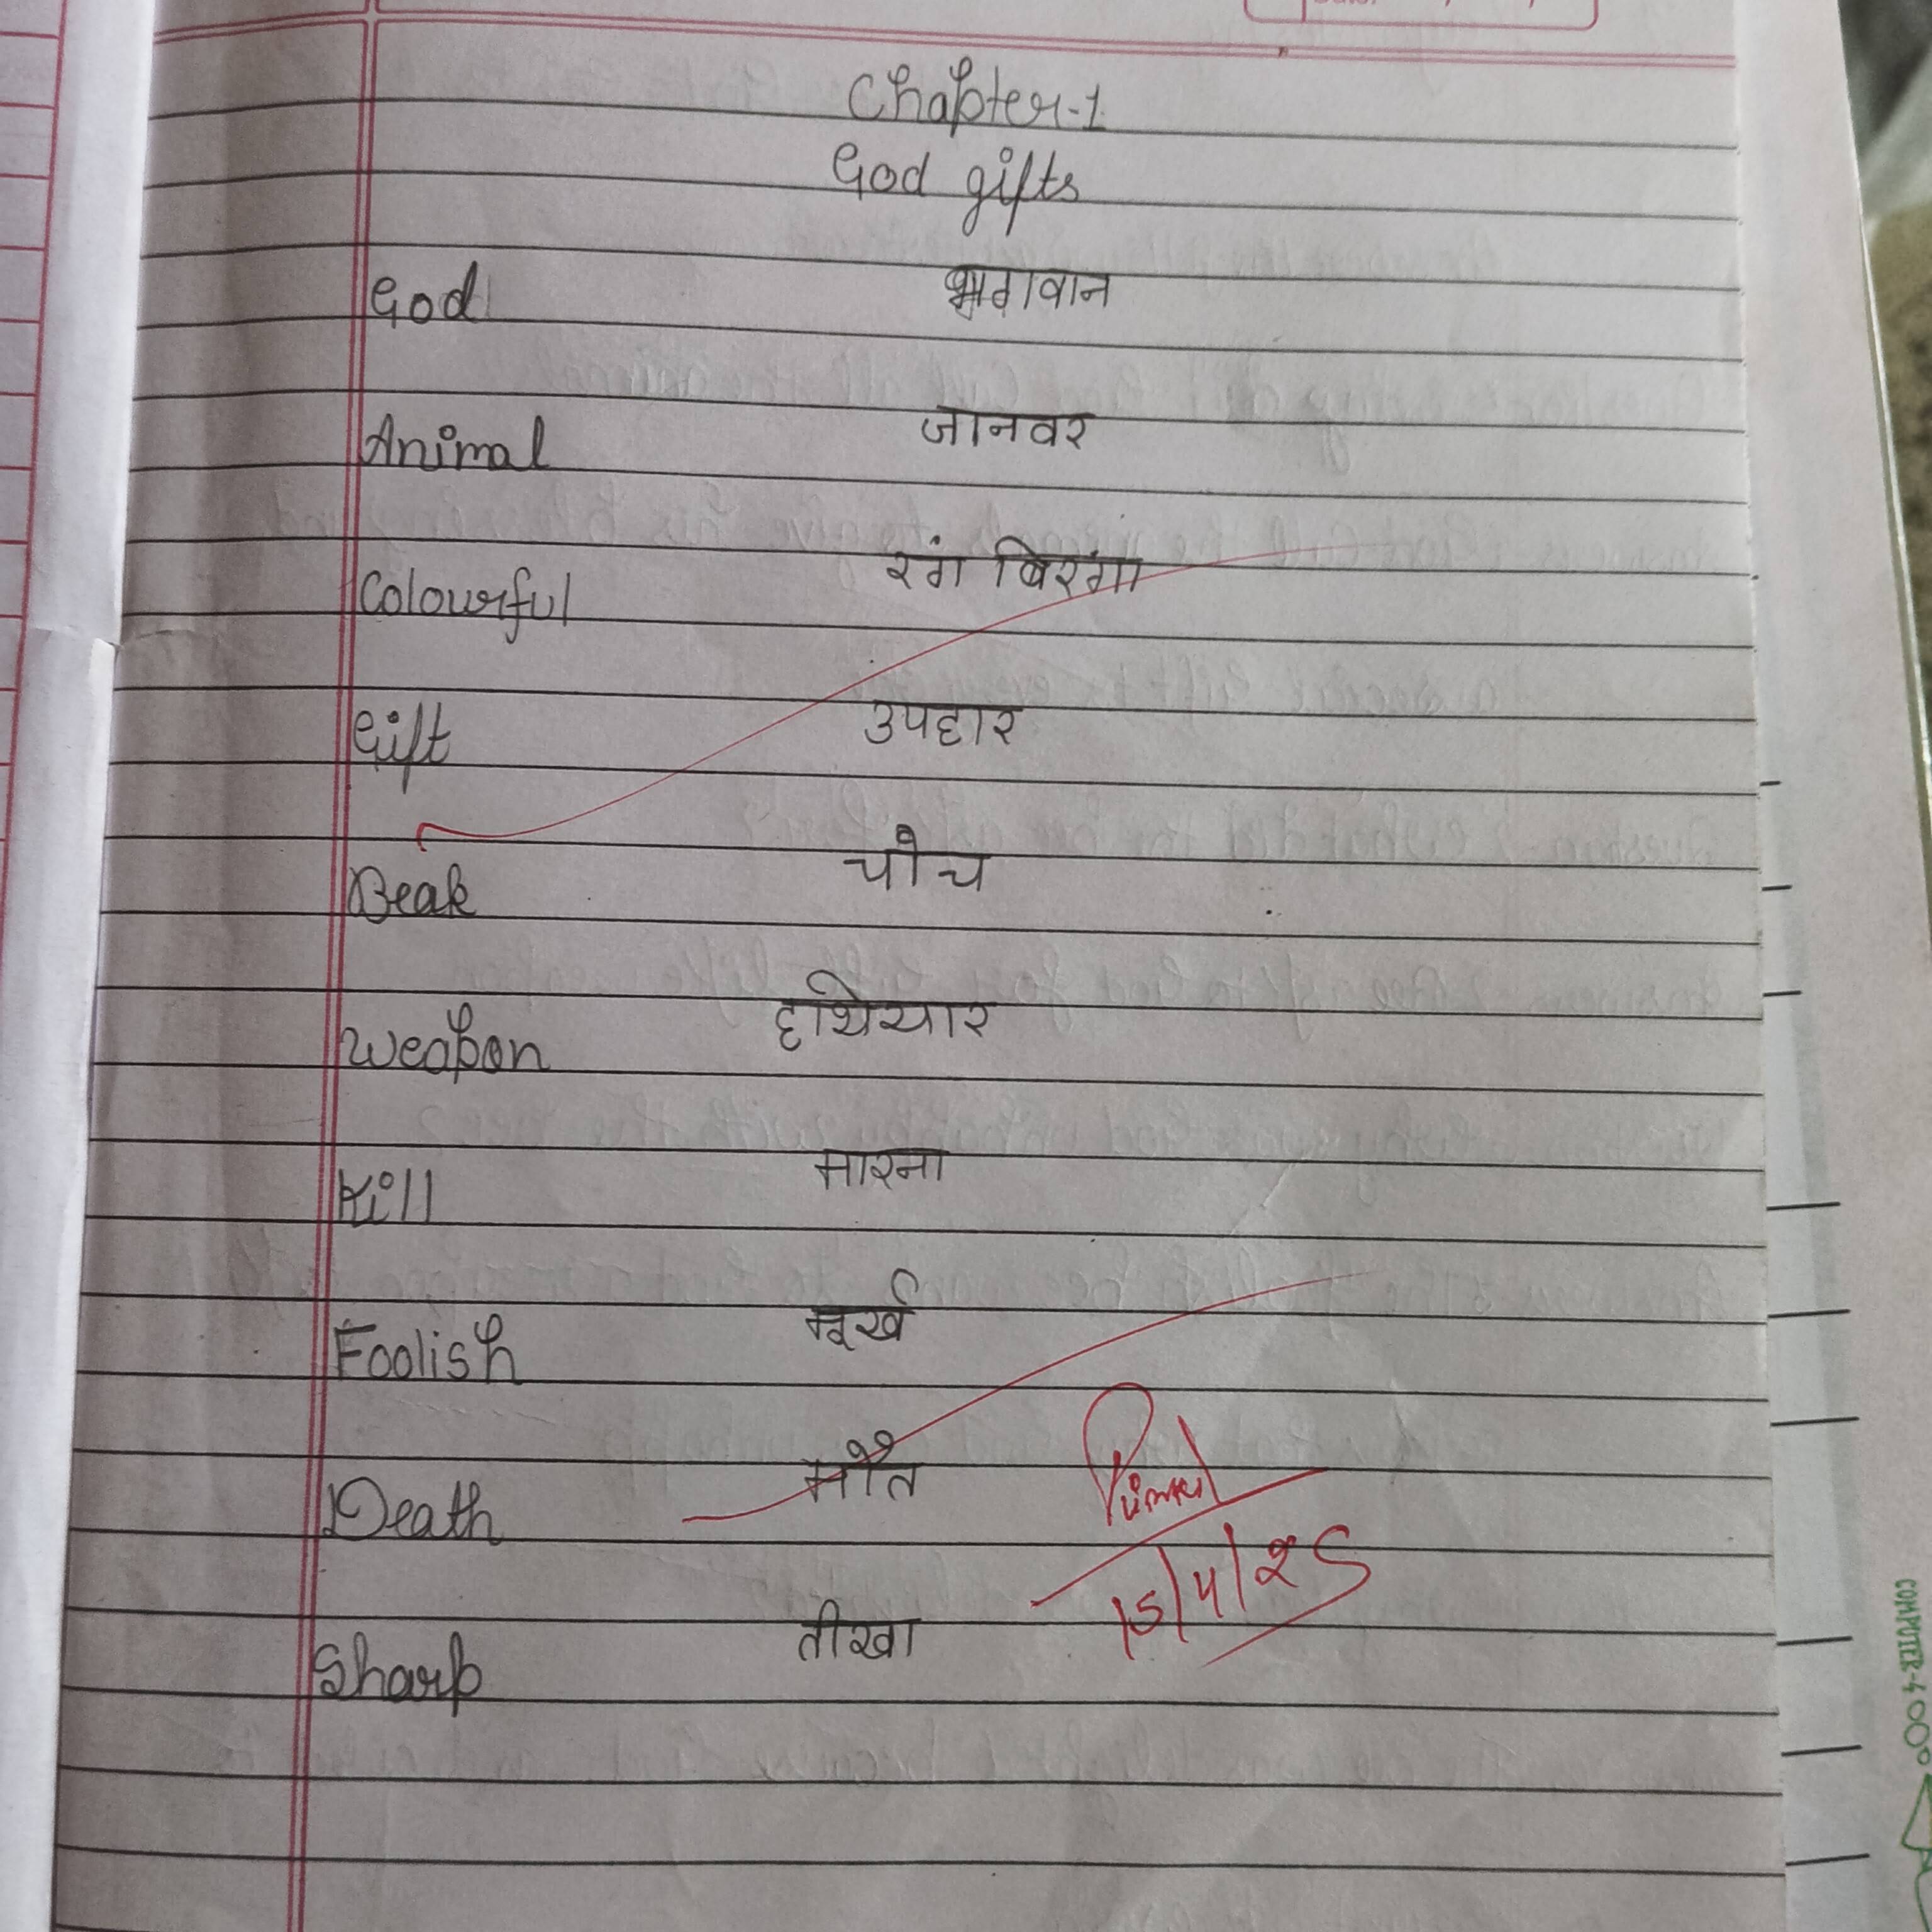 Chapter-1
God gifts
God भगवान
Animal जानवर
Colourful रंग बिरंगा
Gift उपहार
Beak चोच
Weapon हथियार
Kill मारना
Foolish मूर्ख
Death मौत
15/4/25
Sharp तीखा
COMPUTER-4